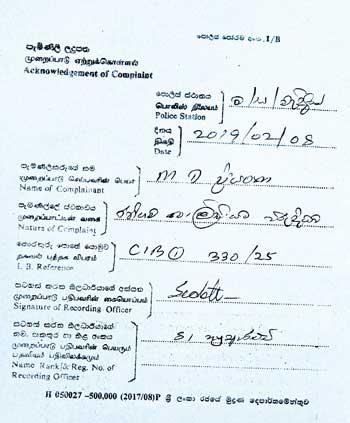 පොලිස් පෝරම අංක. I/B
පැමිණිලි ලදුපත
முறைப்பாடு ஏற்றுக்கொள்ளல்
Acknowledgement of Complaint
පොලිස් ස්ථානය
பொலிஸ் நிலையம்
Police Station
දිනය
திகதி
Date
2019/02/08
පැමිණිලිකරුගේ නම
முறைப்பாடு செய்பவரின் பெயர்
Name of Complainant
M D
පැමිණිල්ලේ ස්වභාවය
முறைப்பாட்டின் வகை
Nature of Complaint
තොරතුරු පොතේ යොමුව
தகவல் புத்தக விபரம்
I. B. Reference
CIB① 330/25
සටහන් කරන නිලධාරියාගේ අත්සන
முறைப்பாடு பதிபவரின் கையொப்பம்
Signature of Recording Officer
සටහන් කරන නිලධාරියාගේ
නම, තනතුර හා නිල අංකය
முறைப்பாடு பதிபவரின் பெயரும்
பதவியும் பதிவிலக்கமும்
Name Rank & Reg. No. of
Recording Officer
H 050027 –500,000 (2017/08)P ශ්‍රී ලංකා රජයේ මුද්‍රණ දෙපාර්තමේන්තුව